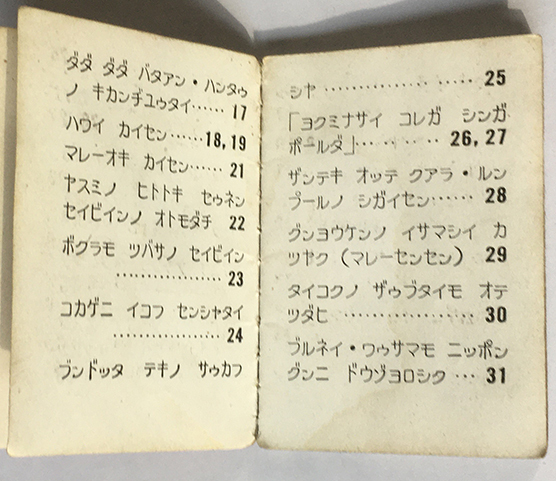 ダダ ダダ バタアン・ハンタウ
ノ キカンヂユウタイ…… 17
ハワイ カイセン……18,19
マレーオキ カイセン…… 21
ヤスミノ ヒトトキ セウネン
セイビインノ オトモダチ 22
ボクラモ ツバサノ セイビイン
……………… 23
コカゲニ イコフ センシャタイ
……………… 24
ブンドッタ テキノ サウカフ
シヤ …………………… 25
「ヨクミナサイ コレガ シンガ
ポールダ」………… 26,27
ザンテキ オッテ クアラ・ルン
プールノ シガイセン…… 28
グンヨウケンノ イサマシイ カ
ツヤク(マレーセンセン) 29
タイコクノ ザウブタイモ オテ
ツダヒ ……………… 30
ブルネイ・ワウサマモ ニッポン
グンニ ドウゾヨロシク … 31